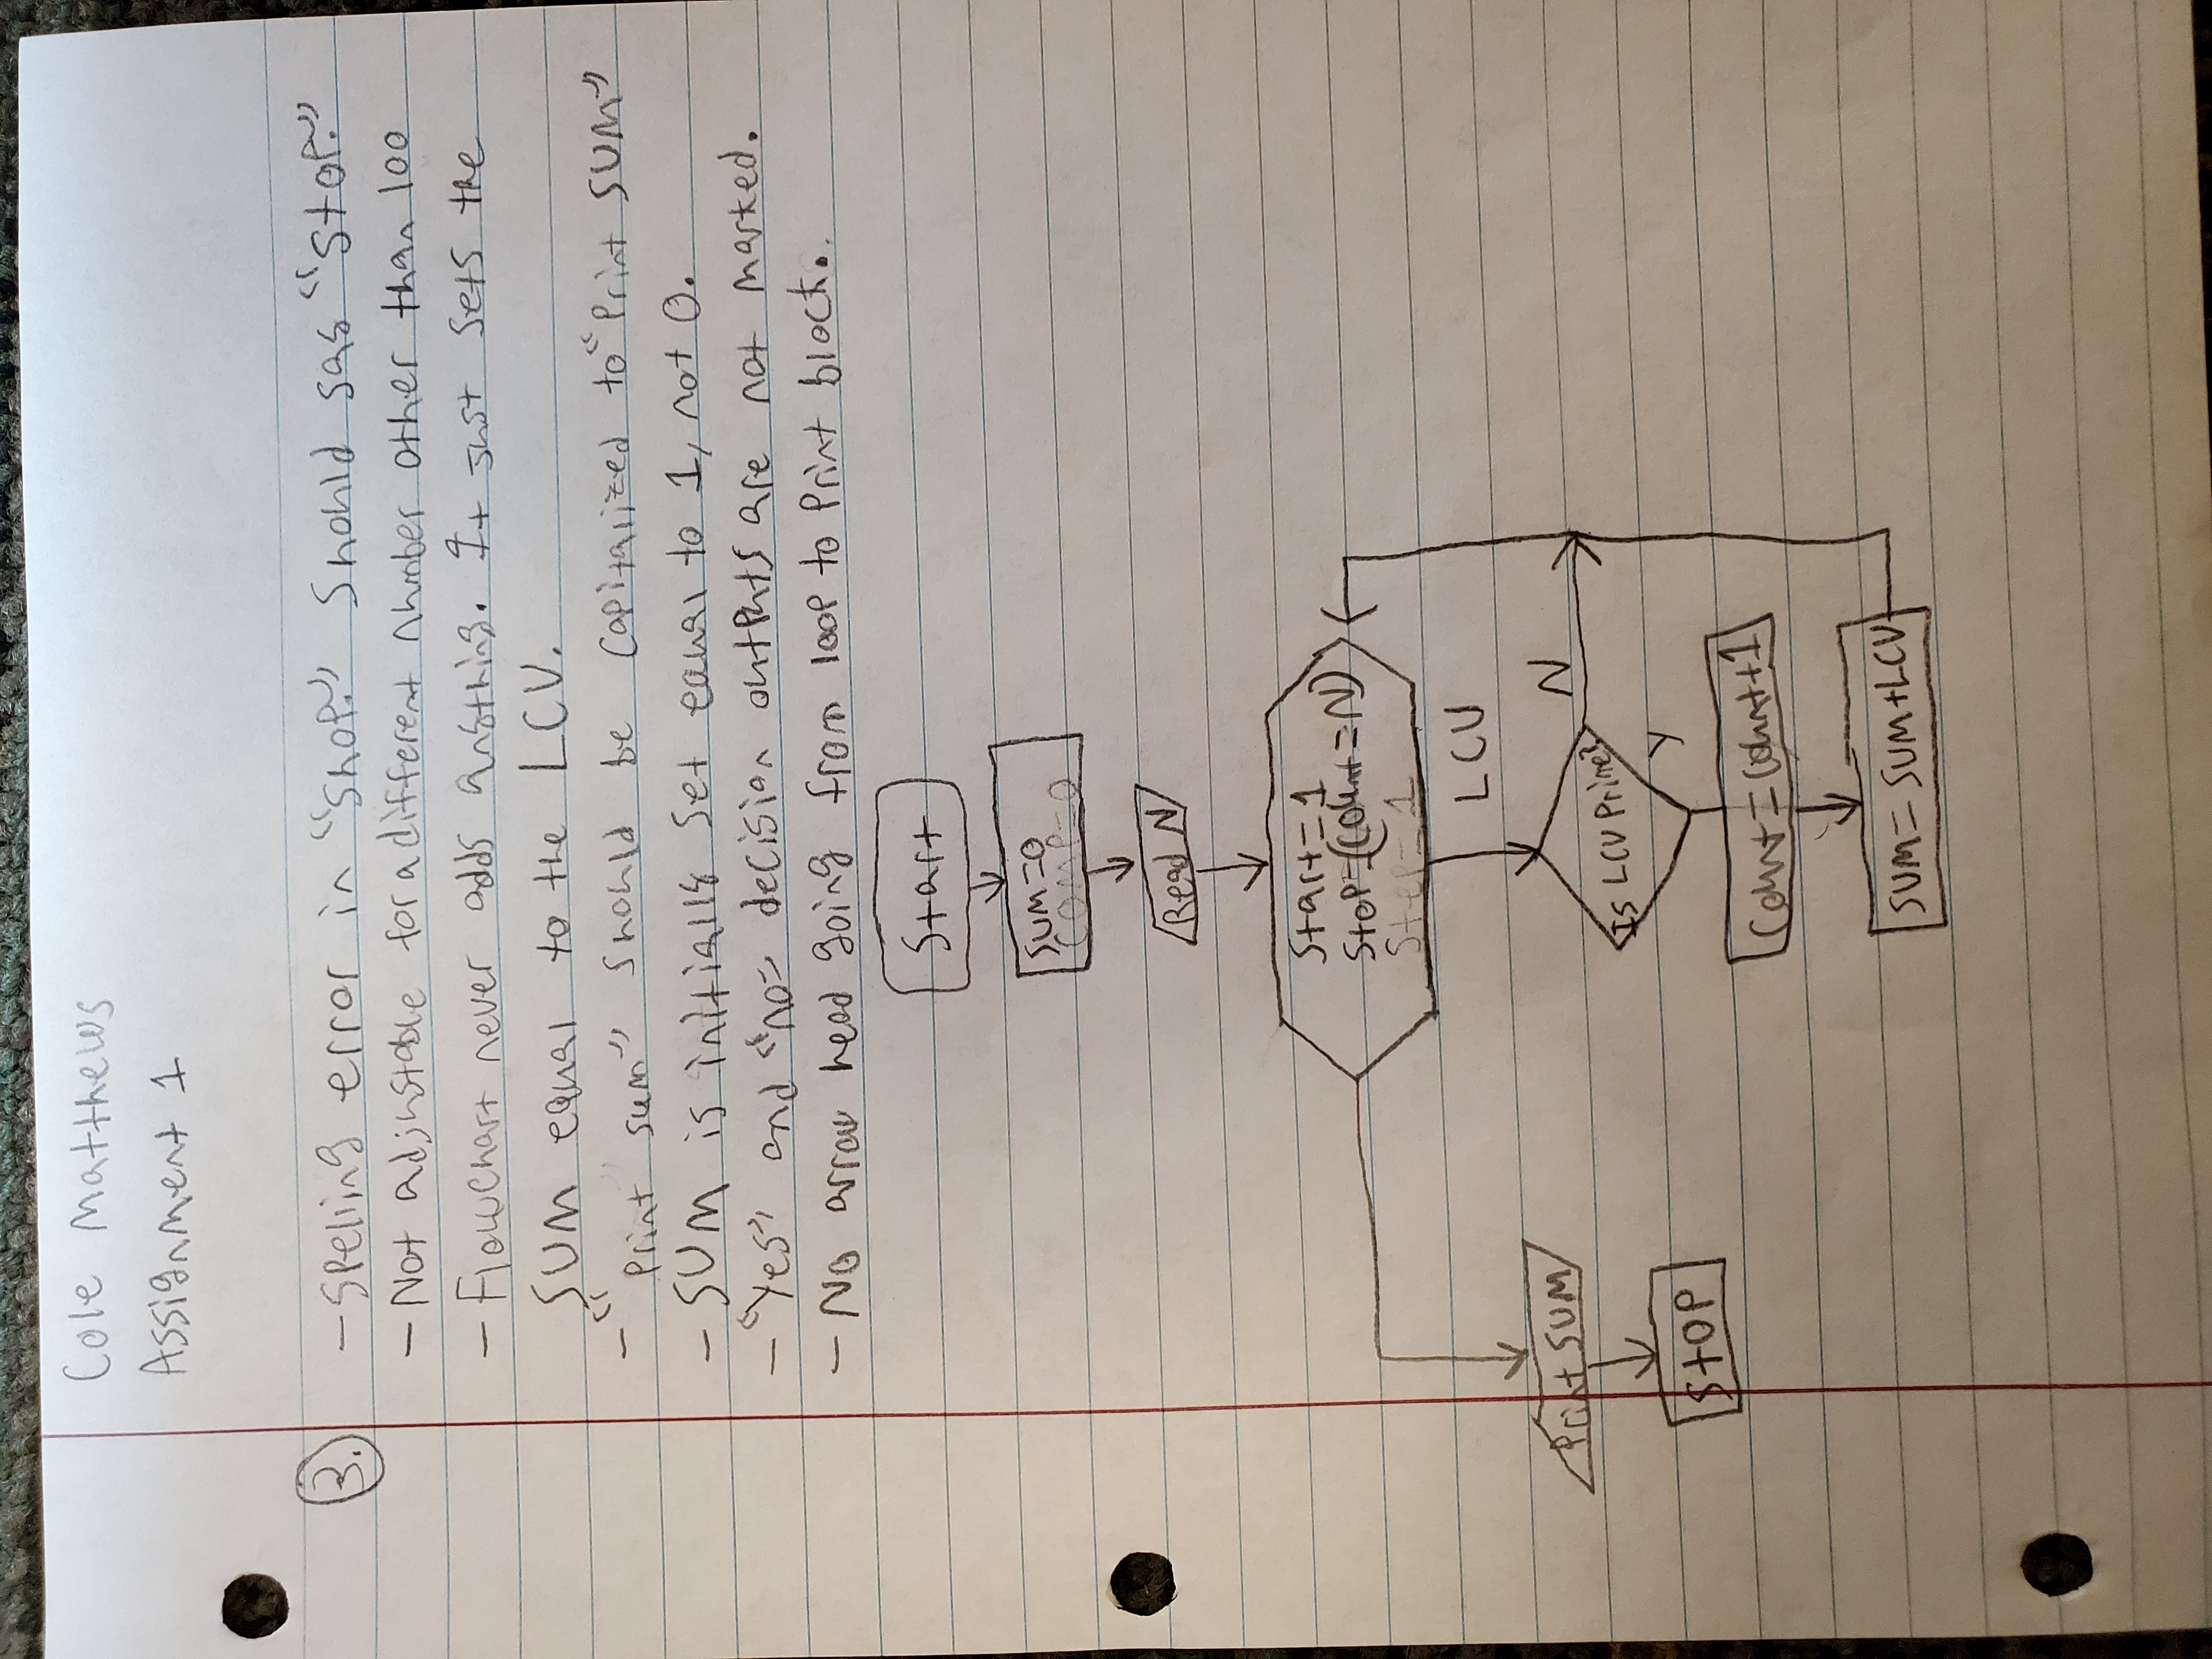 Cole Matthews
Assignment 1
3. - Spelling error in "Shop." Should say "Stop."
- Not adjustable for a different number other than 100
- Flowchart never adds anything. It just sets the
SUM equal to the LCV.
- "Print sum" should be capitalized to "Print SUM"
- SUM is initially set equal to 1, not 0.
- "Yes" and "no" decision outputs are not marked.
- No arrow head going from loop to Print block.
Start
SUM=0
COMP=0
Read N
Start=1
Stop=(Count=N)
Step=1
LCV
Is LCV Prime?
N
Y
Print SUM
STOP
Count=Count+1
SUM=SUM+LCV